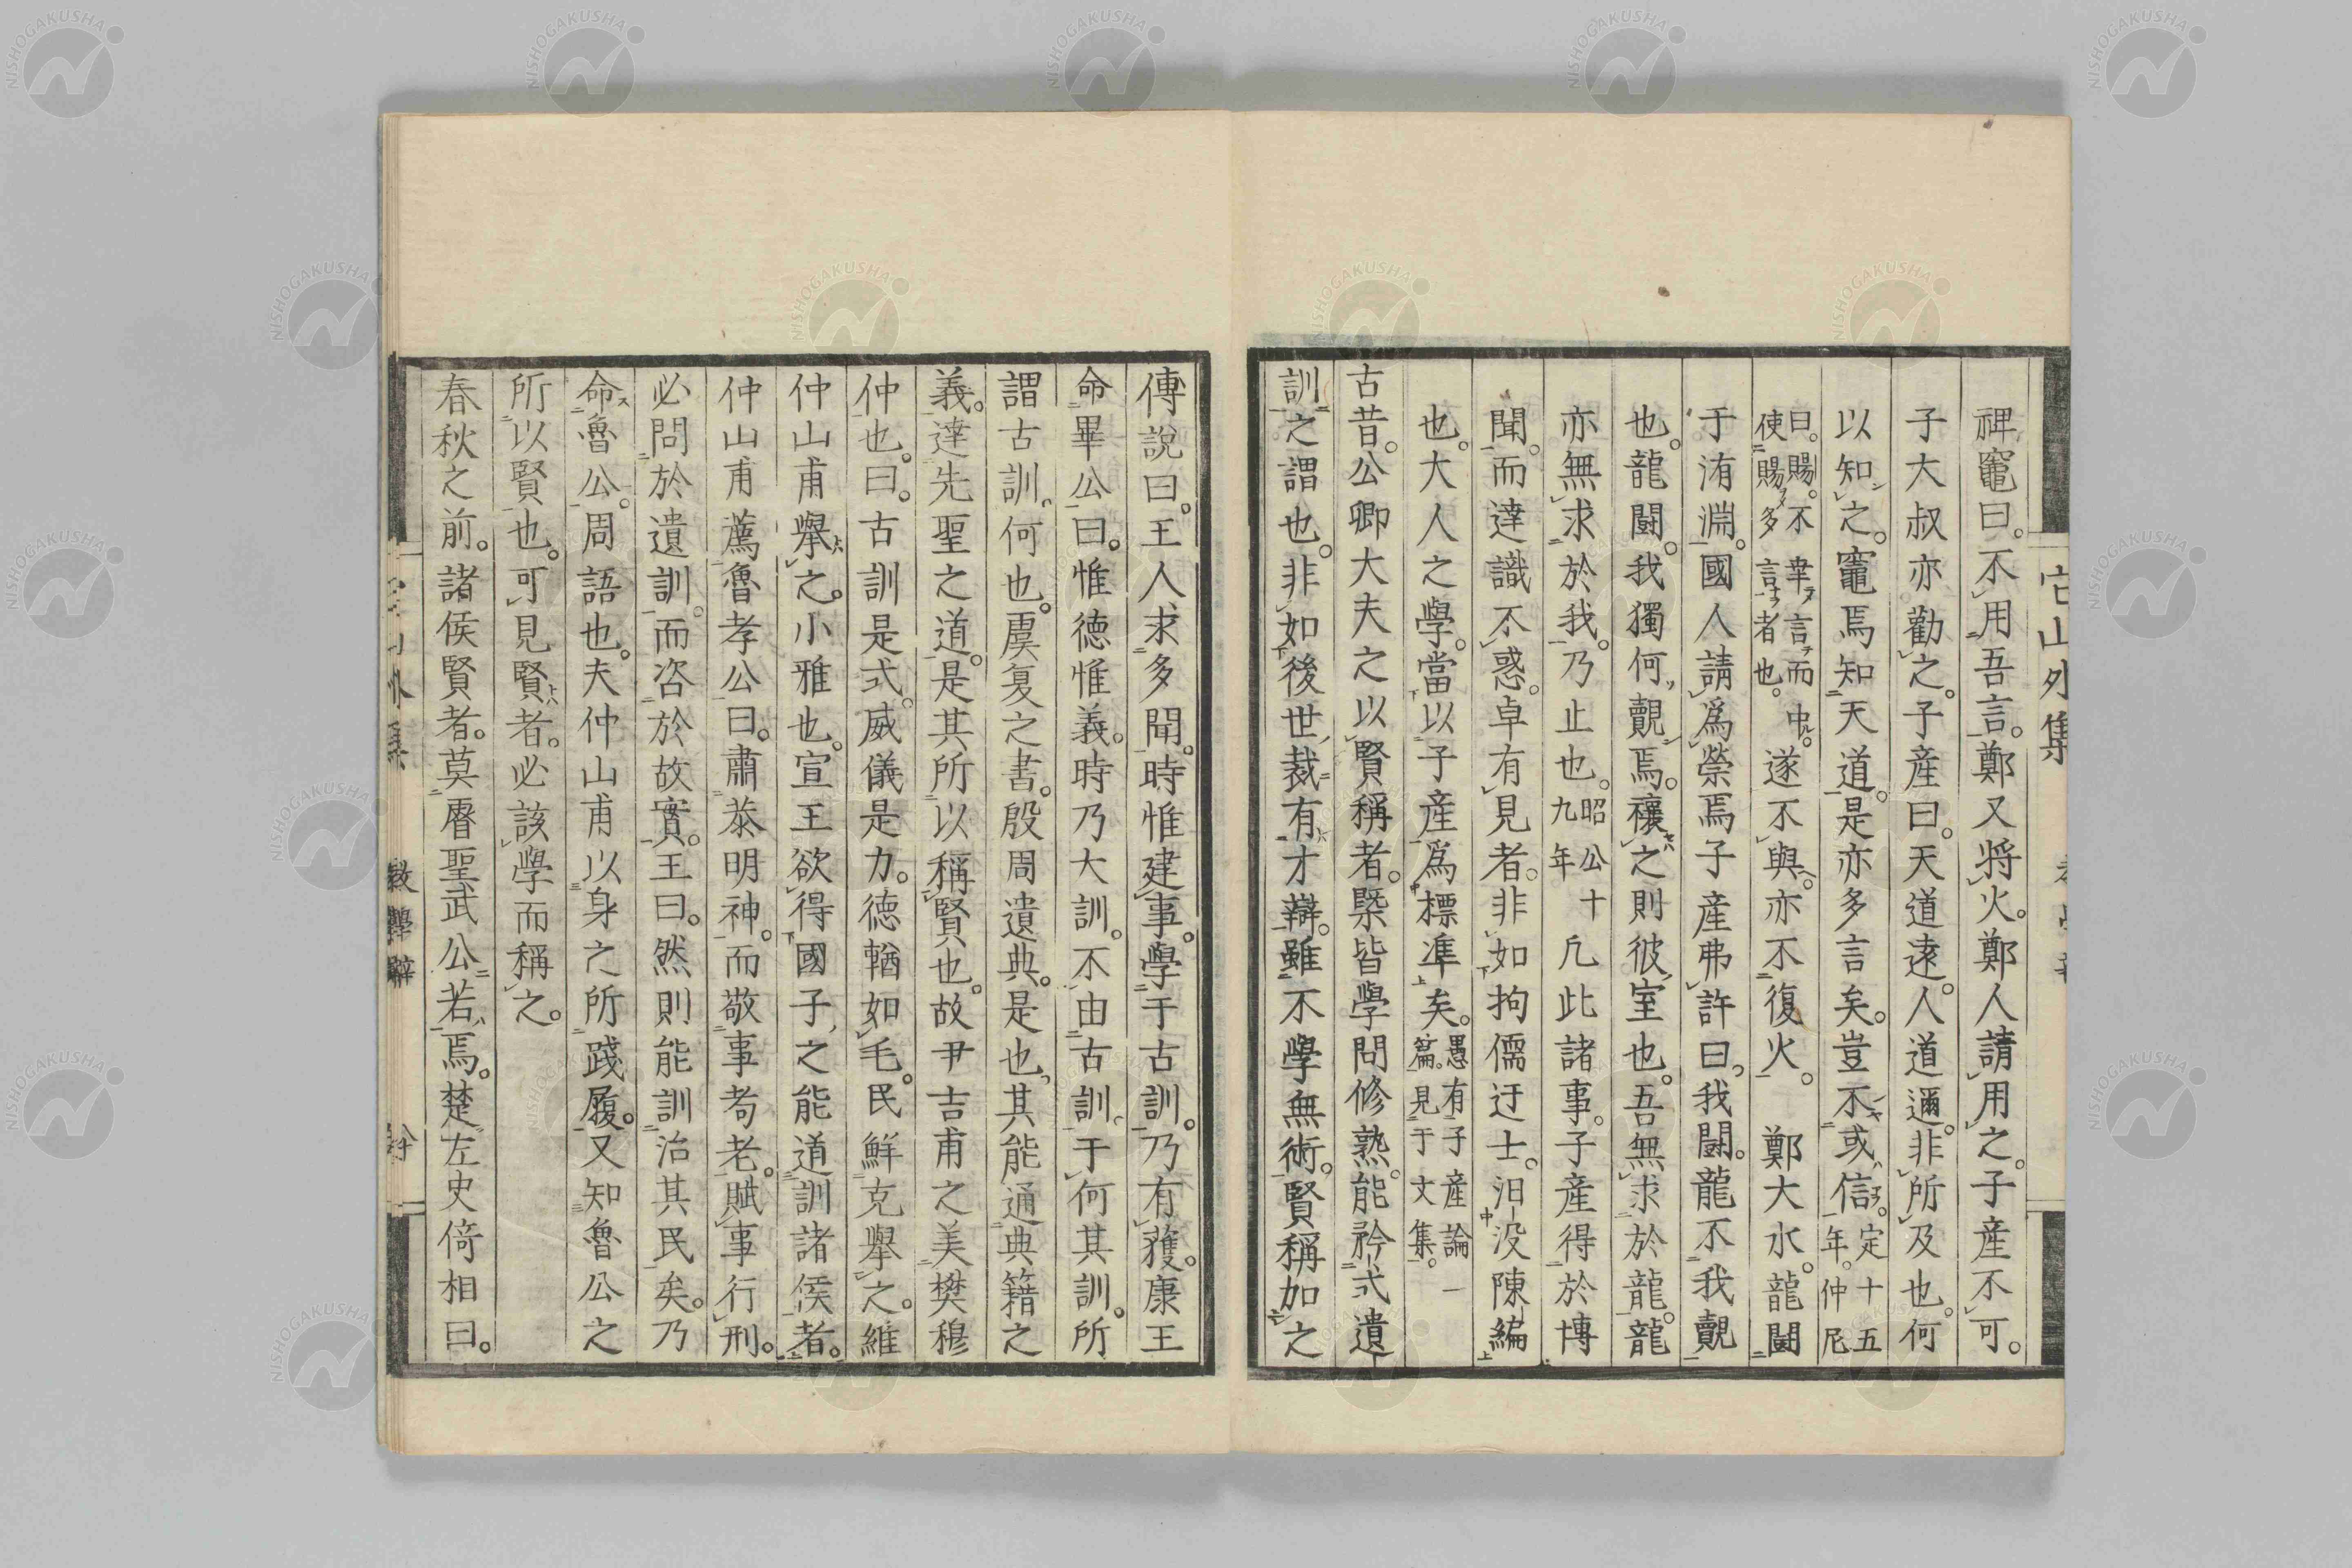 它山外集
裨竈曰。不用吾言。鄭又將火。鄭人請用之。子產不可。
子大叔亦勸之。子產曰。天道遠。人道邇。非所及也。何
以知之。竈焉知天道。是亦多言矣。豈不或信。定十五年。仲尼
曰。賜不幸言而中。使賜多言者也。遂不與。亦不復火。 鄭大水。龍鬪
于洧淵。國人請爲禜焉子產弗許曰。我鬪。龍不我覿
也。龍鬪。我獨何覿焉。禳之則彼室也。吾無求於龍。龍
亦無求於我。乃止也。昭公十九年 凡此諸事。子產得於博
聞。而達識不惑。卓有見者。非如拘儒迂士。汨没陳編
也。大人之學。當以子產爲標準矣。愚有子產論一篇。見于文集。
古昔。公卿大夫之以賢稱者。槩皆學問修熟。能矜式遺
訓之謂也。非如後世裁有才辯。雖不學無術。賢稱加之
傳說曰。王人求多聞。時惟建事。學于古訓。乃有獲。康王
命畢公曰。惟德惟義。時乃大訓。不由古訓。于何其訓。所
謂古訓。何也。虞夏之書。殷周遺典。是也。其能通典籍之
義。達先聖之道。是其所以稱賢也。故尹吉甫之美樊穆
仲也。曰。古訓是式。威儀是力。德輶如毛。民鮮克舉之。維
仲山甫舉之。小雅也。宣王欲得國子之能道訓諸侯者。
仲山甫薦魯孝公曰。肅恭明神。而敬事耇老。賦事行刑。
必問於遺訓。而咨於故實。王曰。然則能訓治其民矣。乃
命魯公。周語也。夫仲山甫以身之所踐履。又知魯公之
所以賢也。可見賢者。必該學而稱之。
春秋之前。諸侯賢者。莫磿聖武公若焉。楚左史倚相曰。